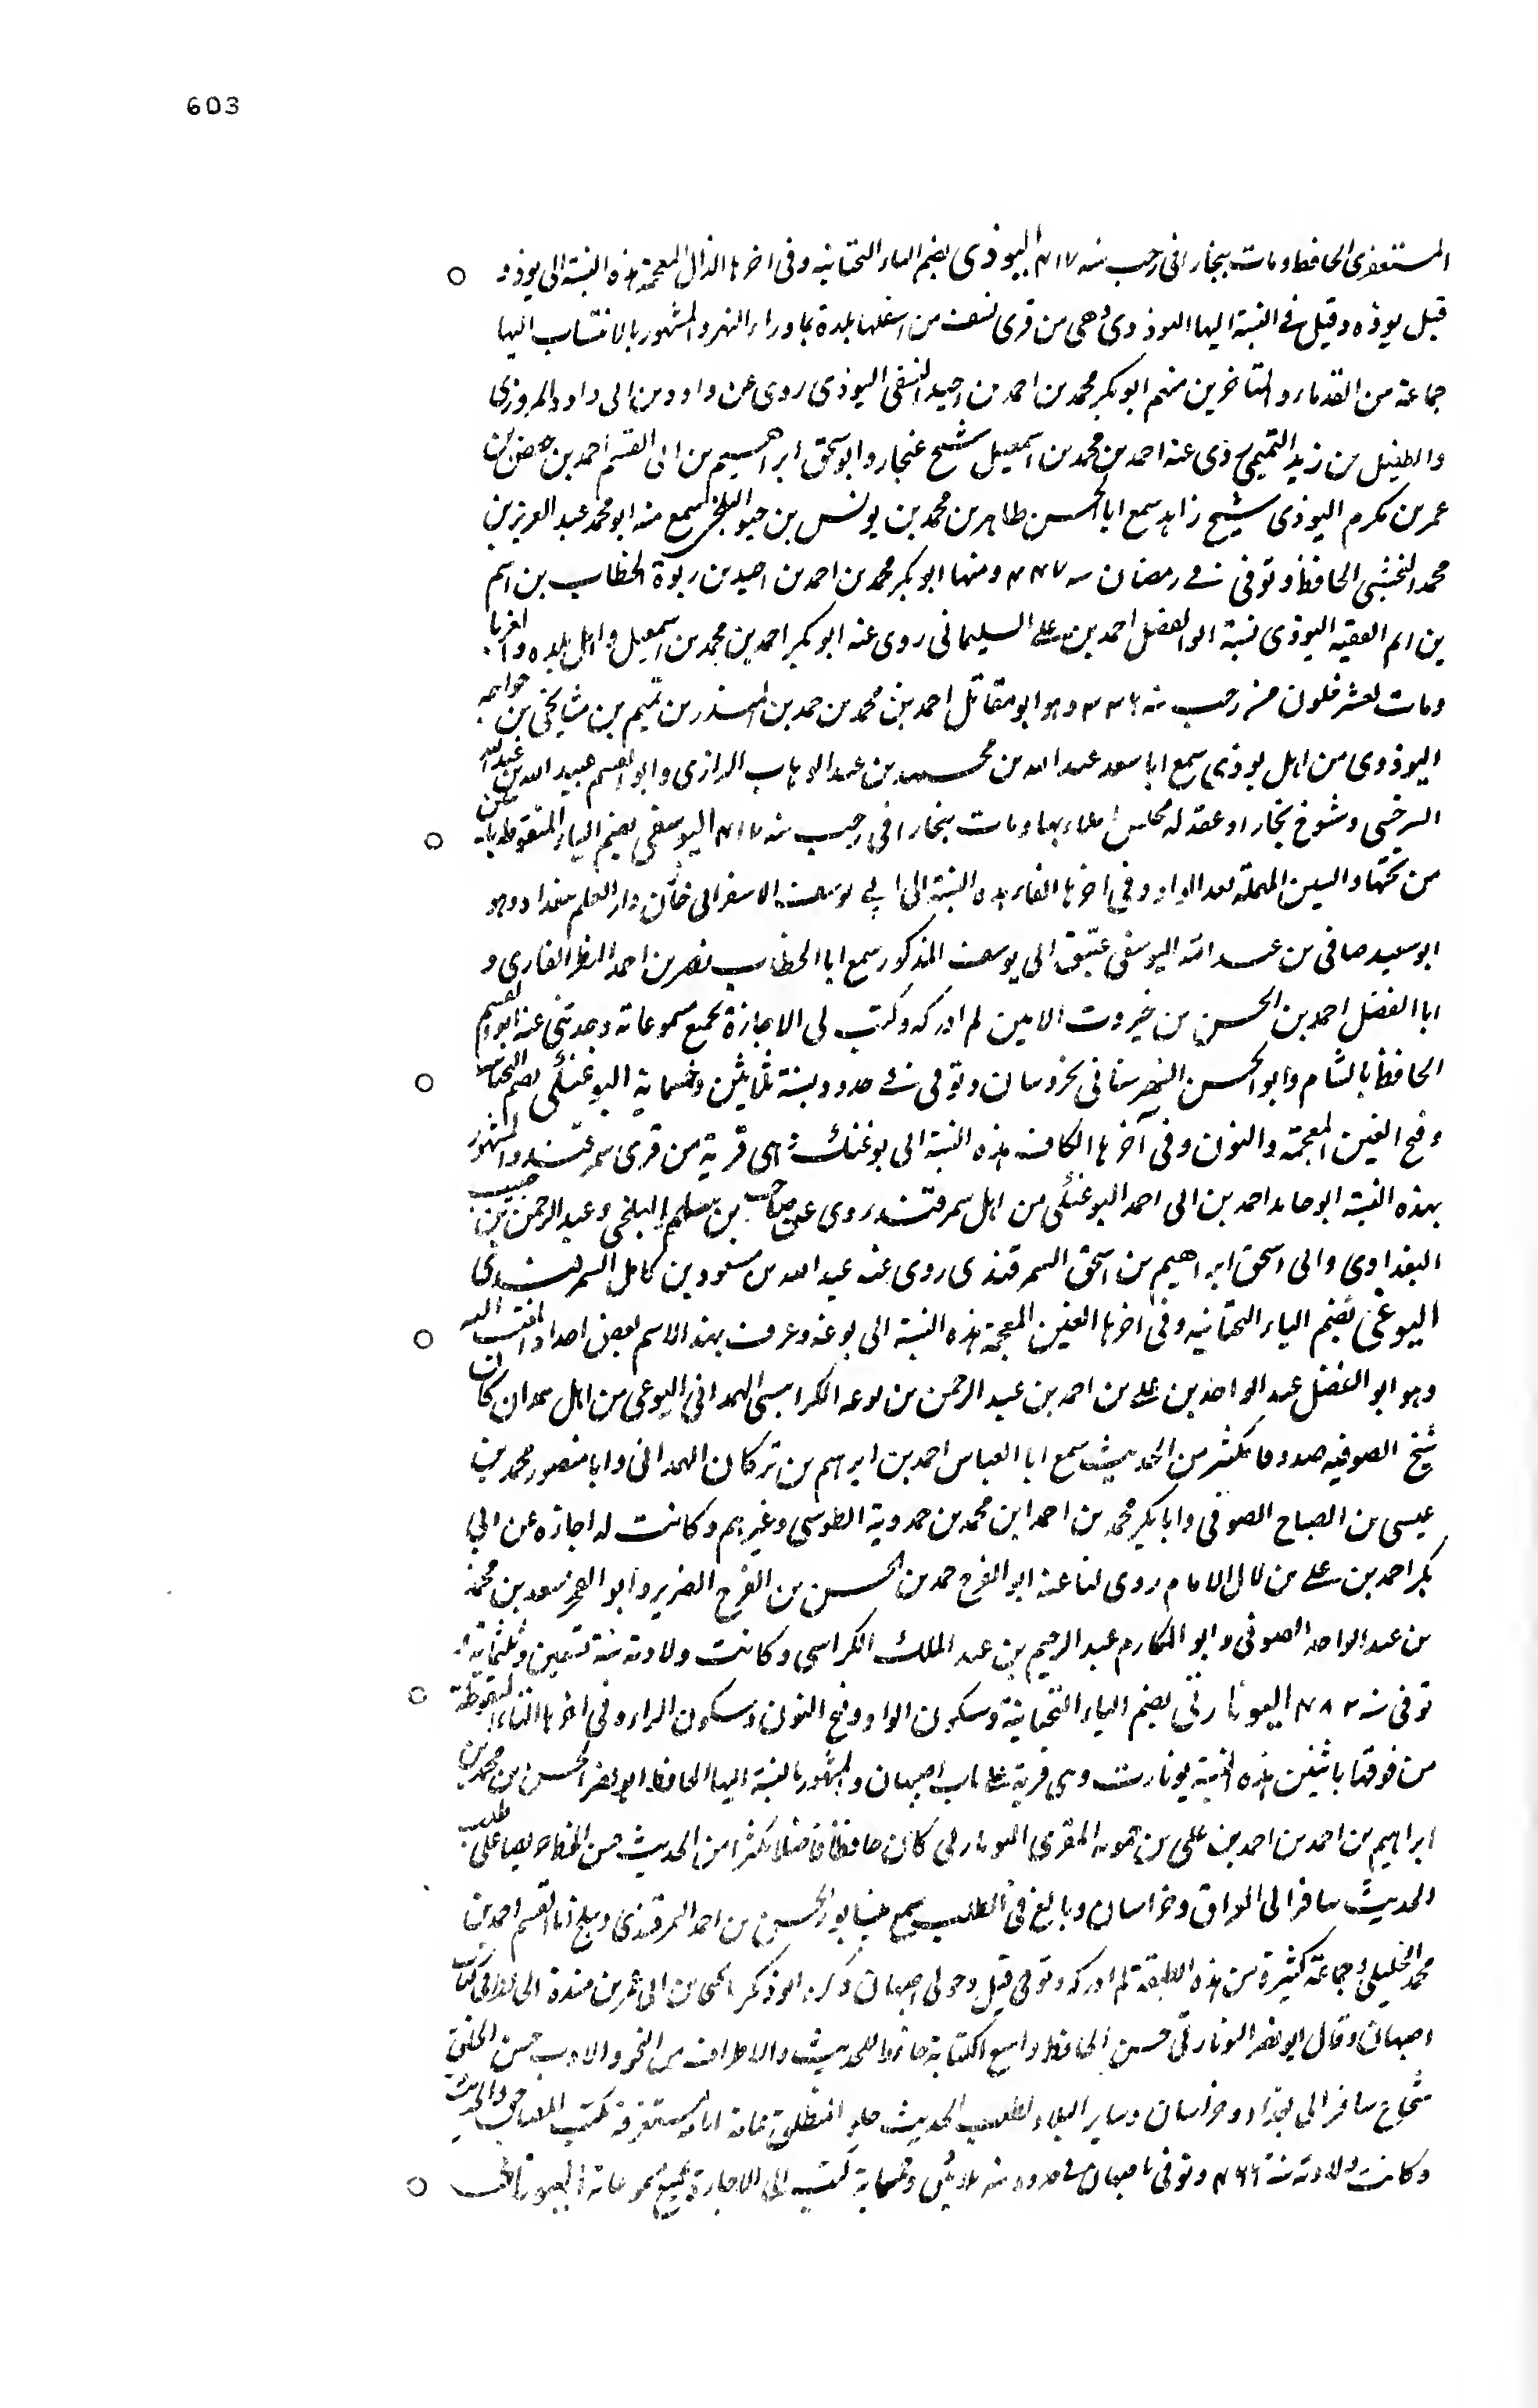 603
المستغفرى الحافظ ومات ببخارا فى رجب سنه ٤١٧ اليوذى بضم الياء التحتانيه وفى اخرها الذال المعجمة هذه النسبة الى يوذ و
قيل يوذه وقيل فى النسبة اليها اليوذوى وهى من قرى نسف من اسفلها بلدة بما وراء النهر والمشهور بالانتساب اليها
جماعة من القدماء والمتاخرين منهم ابو بكر محمد بن احمد بن احيد النسفى اليوذى روى عن داود بن ابى داود المروزى
والطفيل بن زيد التميمى روى عنه احمد بن محمد بن اسمعيل شيخ غنجار وابو اسحق ابراهيم بن ابى القسم احمد بن حفص بن
عمر بن مكرم اليوذى شيخ زاهد سمع ابا الحسن طاهر بن محمد بن يونس بن خيو البلخى سمع منه ابو محمد عبد العزيز بن
محمد النخشبى الحافظ وتوفى فى رمضان سنه ٤٤٧ ومنها ابو بكر محمد بن احمد بن احيد بن ربوة الخطاب بن اسم
بن ام الفقيه اليوذى نسبة ابو الفضل احمد بن على السليمانى روى عنه ابو بكر احمد بن محمد بن اسمعيل واهل بلده و
ومات لعشر خلون من رجب سنه وهو ابو مقاتل احمد بن محمد بن حمد بن المنذر بن تميم بن
اليوذوى من اهل يوذى سمع ابا سعد عبد الله بن محمد بن عبد الوهاب الرازى وابو القسم عبيد الله بن عبد الله
السرخسى وشيوخ بخارا وعقد له مجلس املاء بها ومات ببخارا فى رجب سنه ٤١٧ اليوسفى بضم الياء المنقوطة
من تحتها والسين المهملة بعد الواو وفى اخرها الفاء هذه النسبة الى ابى يوسف الاسفراى خازن دار العلم ببغداد وهو
ابو سعيد صافى بن عبد الله اليوسفى عتيق ابى يوسف المذكور سمع ابا الخطاب نصر بن احمد البطر القارى و
ابا الفضل احمد بن الحسن بن خيرون الامين لم ادركه وكتب لى الاجازة بجميع مسموعاته وحدثنى عنه ابو القسم
الحافظ بالشام وابو الحسن الشهرستانى بخروسان وتوفى فى حدود سنة ثلثين وخمسماية اليوغنكى بضم
وفتح الغين المعجمة والنون وفى آخرها الكاف هذه النسبة الى يوغنك هى قرية من قرى سمرقند والمشهور
بهذه النسبة ابو حامد احمد بن ابى احمد اليوغنكى من اهل سمرقند روى عن بن مسلم البلخى وعبد الرحمن بن حبيب
البغدادى وابى اسحق ابراهيم بن اسحق السمرقندى روى عنه عبد الله بن مسعود بن كامل السمرقندى
اليوغى بضم الياء التحتانيه وفى اخرها الغين المعجمة هذه النسبة الى يوغه وعرف بهذا الاسم بعض اجداد المنتسب اليه
وهو ابو الفضل عبد الواحد بن على بن احمد بن عبد الرحمن بن يوغه الكرابيسى الهمدانى اليوغى من اهل همدان كان
شيخ الصوفيه صدوقا مكثر من الحديث سمع ابا العباس احمد بن ابرهيم بن تركان الهمدانى وابا منصور محمد بن
عيسى بن الصباح الصوفى وابا بكر محمد بن احمد ابن محمد بن حمدوية الطوسى وغيرهم وكانت له اجازه عن ابى
بكر احمد بن على بن لال الامام روى لنا عنه ابو الفرج حمد بن الحسن بن الفرج الضرير وابو الفخر سعد بن محمد
بن عبد الواحد الصوفى وابو المكارم عبد الرحيم بن عبد الملك الكرابسى وكانت ولادته سنة تسعين وثلثماية و
توفى سنه اليونارتى بضم الياء التحتانية وسكون الواو وفتح النون وسكون الراء وفى اخرها التاء المنقوطة
من فوقها باثنين هذه النسبة يونارت وهى قرية على باب اصبهان والمشهور بالنسبة اليها الحافظ ابو نصر الحسن بن محمد بن
ابراهيم بن احمد بن احمد بن على بن حمويه المقرى اليونارتى كان حافظا فاضلا مكثرا من الحديث حسن الخط حريصا على طلب
الحديث سافر الى العراق وخراسان وبالغ فى الطلب سمع بنيسابور الحسن بن احمد السمرقندى وببلخ ابا القسم احمد بن
محمد الخليلى وجماعة كثيرة من هذه الطبقة لم ادركه وتوفى قبل دخولى اصبهان ذكره ابو زكريا يحيى بن ابى عمرو بن مندة الحافظ فى كتاب
اصبهان وقال ابو نصر اليونارتى حسن الحافظ واسع الكتابة حافظ للحديث والاطراف من النحو والادب حسن الخلق
شجاع سافر الى بغداد وخراسان وساير البلاد لطلب الحديث
وكانت ولادته سنة ٤٦٦ وتوفى باصبهان فى حدود سنه ثلاثين وخمسماية كتب الى الاجازة بجميع مسموعاته